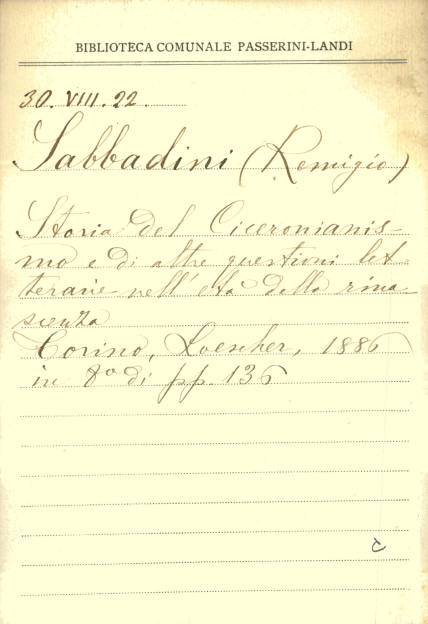 BIBLIOTECA COMUNALE PASSERINI-LANDI
30. VIII. 22.
Sabbadini (Remigio)
Storia del Ciceronianis-
mo e di altre questioni let-
terarie nell'età della rina-
scenza
Torino, Loescher, 1886
in 8º di pp. 136
c